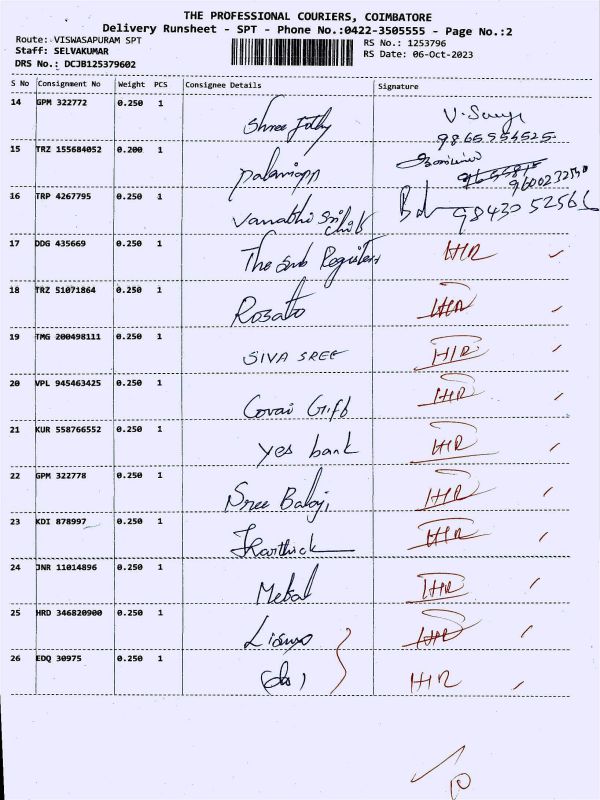 THE PROFESSIONAL COURIERS, COIMBATORE
Delivery Runsheet - SPT - Phone No.:0422-3505555 - Page No.:2
Route: VISWASAPURAM SPT
Staff: SELVAKUMAR
DRS No.: DCJB125379602
RS No.: 1253796
RS Date: 06-Oct-2023
S No Consignment No Weight PCS Consignee Details Signature
14 GPM 322772 0.250 1 Shree
9865554525
15 TRZ 155684052 0.200 1
9600232530
16 TRP 4267795 0.250 1 Vanathi
9843052566
17 DDG 435669 0.250 1 The Sub Register HR
18 TRZ 51071864 0.250 1 Rosato HR
19 TMG 200498111 0.250 1 SIVA SREE HR
20 VPL 945463425 0.250 1 Covai Gift HR
21 KUR 558766552 0.250 1 yes bank HR
22 GPM 322778 0.250 1 Sree Balaji HR
23 KDI 878997 0.250 1 Karthick HR
24 JNR 11014896 0.250 1 Metal HR
25 HRD 346820900 0.250 1 HR
26 EDQ 30975 0.250 1 (do) HR
10